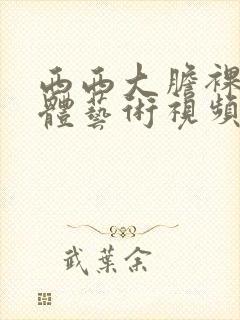 西西大膽裸
體藝術視頻
武葉余